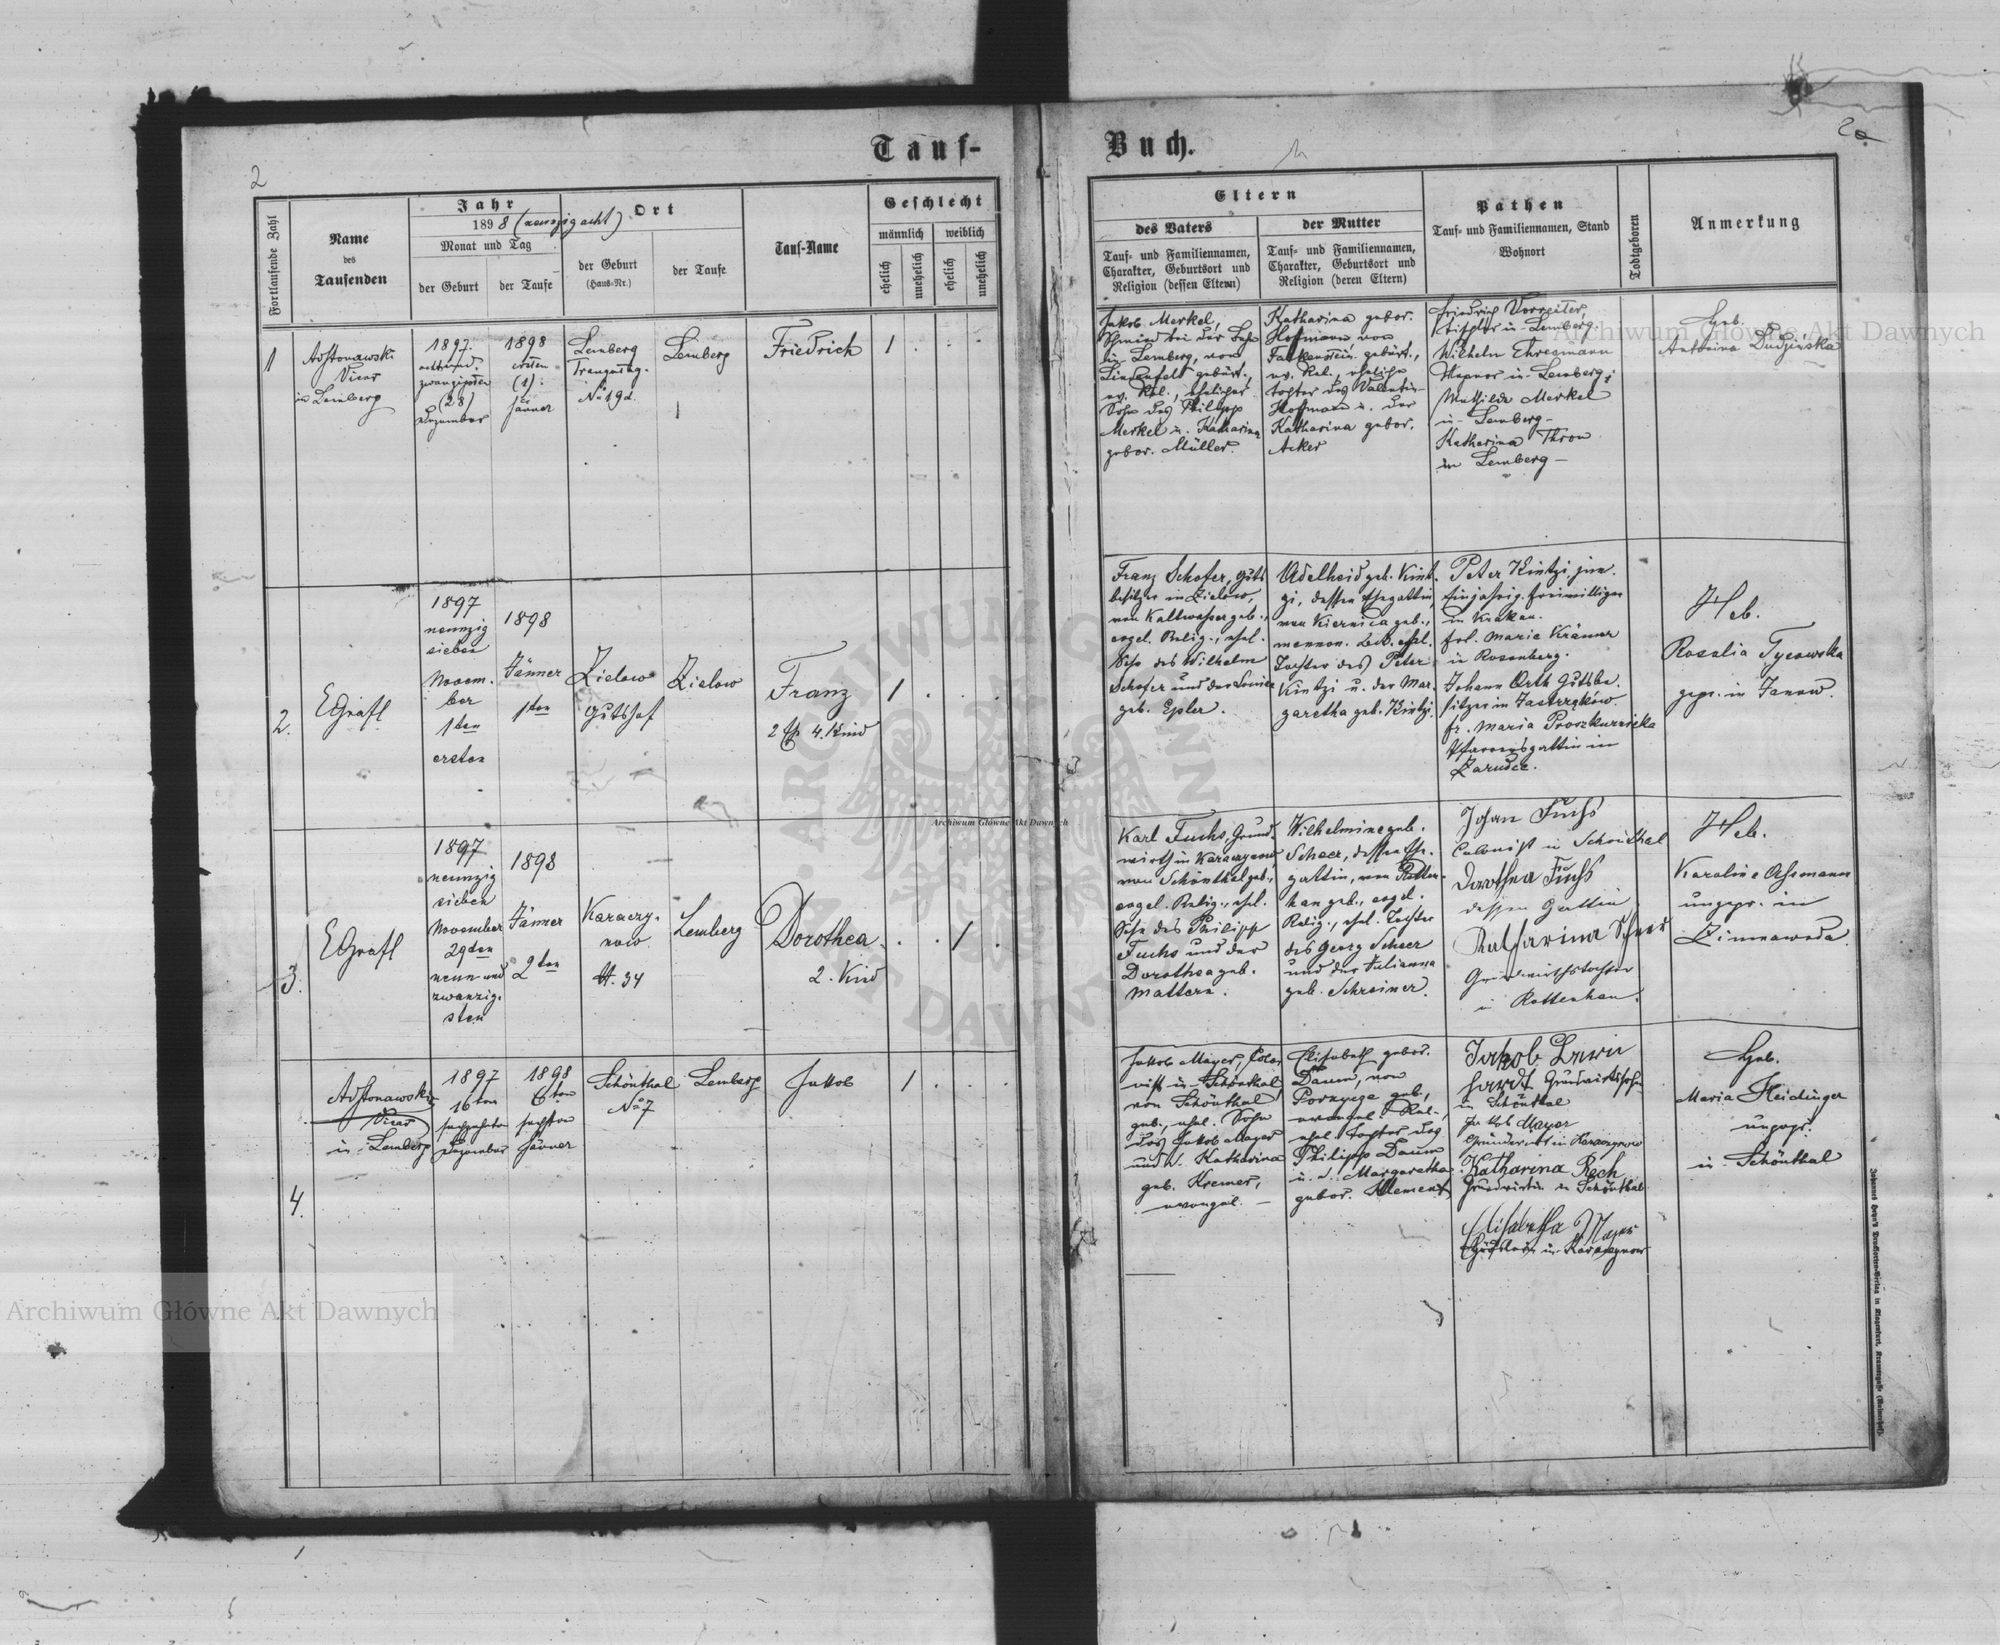 Tauf-
Buch.
2
2a
Fortlaufende Zahl
Name
des
Taufenden
Jahr
1898 (neunzig acht)
Monat und Tag
der Geburt
der Taufe
Ort
der Geburt
(Haus-Nr.)
der Taufe
Tauf-Name
Geschlecht
männlich
weiblich
ehelich
unehelich
ehelich
unehelich
Eltern
des Vaters
Tauf- und Familiennamen,
Charakter, Geburtsort und
Religion (dessen Eltern)
der Mutter
Tauf- und Familiennamen,
Charakter, Geburtsort und
Religion (deren Eltern)
Pathen
Tauf- und Familiennamen, Stand
Wohnort
Todtgeboren
Anmerkung
1
Vicar
in Lemberg
1897.
(28)
Dezember
1898
ersten
(1)
Jänner
Lemberg
No 19d.
Lemberg
Friedrich
1
Jakob Merkel,
in Lemberg, von
Lindenfeld gebürt.,
ev. Rel., ehelicher
Sohn des Philipp
Merkel u. Katharina
gebor. Müller.
Katharina gebor.
Hofmann von
Falkenstein gebürt.,
ev. Rel., eheliche
Tochter des Valentin
Hofmann u. der
Katharina gebor.
Acker
Friedrich Vorreiter,
Tischler in Lemberg
Wilhelm Ehresmann
Wagner in Lemberg;
Mathilde Merkel
in Lemberg
Katharina Thron
in Lemberg
Heb.
Antonina Dudzińska
2.
EGräfl
1897
neunzig
sieben
Novem-
ber
1ten
ersten
1898
Jänner
1ten
Zielow
Gutshof
Zielow
Franz
2 Eh 4. Kind
1
Franz Schofer, Guts
besitzer in Zielow,
von Kaltwasser geb.,
evgel. Relig., ehel.
Sohn des Wilhelm
Schofer und der Louise
geb. Epler.
Adelheid geb. Kint-
zi, dessen Ehegattin,
von Kiernica geb.,
mennon. Bek. ehel.
Tochter des Peter
Kintzi u. der Mar-
garetha geb. Kintzi.
Peter Kintzi jun.
Einjährig. Freiwilliger
in Krakau.
Frl. Marie Krämer
in Rosenberg.
Johann Orth Gutsbe-
sitzer in Jastrzębków.
Fr. Maria Proszkurnicka
Pfarrersgattin in
Zarudce.
Heb.
Rosalia Tycowska
gepr. in Janow.
3.
EGräfl
1897
neunzig
sieben
November
29ten
neun und
zwanzig-
sten
1898
Jänner
2ten
Karaczy-
now
N. 34
Lemberg
Dorothea
2. Kind
1
Karl Fuchs, Grund-
wirth in Karaczynow
von Schönthal geb.,
evgel. Relig., ehel.
Sohn des Philipp
Fuchs und der
Dorothea geb.
Mattern.
Wilhelmine geb.
Scheer, dessen Ehe-
gattin, von Rotten-
han geb., evgel.
Relig., ehel. Tochter
des Georg Scheer
und der Julianna
geb. Schreiner.
Johan Fuchs
Colonist in Schönthal
Dorothea Fuchs
dessen Gattin
Katharina Scheer
Grundwirthstochter
in Rottenhan.
Heb.
Karoline Ahsmann
ungepr. in
Zimnawoda.
4.
Vicar
in Lemberg
1897
16ten
sechzehnten
Dezember
1898
6ten
sechsten
Jänner
Schönthal
No 7
Lemberg
Jakob
1
Jakob Mayer, Colo-
nist in Schönthal
von Schönthal
geb., ehel. Sohn
des Jakob Mayer
und d. Katharina
geb. Kremer,
evangel.
Elisabeth gebor.
Daum, von
geb.,
evangel. Rel.,
ehel. Tochter des
Philipp Daum
u. d. Margaretha
gebor. Klement
Jakob
in Schönthal
Jakob Mayer
Grundwirt in Karaczynow
Katharina Rech
Grundwirtin in Schönthal
Elisabetha Mayer
in Karaczynow
Heb.
Maria Heidinger
ungepr.
in Schönthal
Archiwum Główne Akt Dawnych
Archiwum Główne Akt Dawnych
Archiwum Główne Akt Dawnych
ARCHIWUM GŁÓWNE AKT DAWNYCH